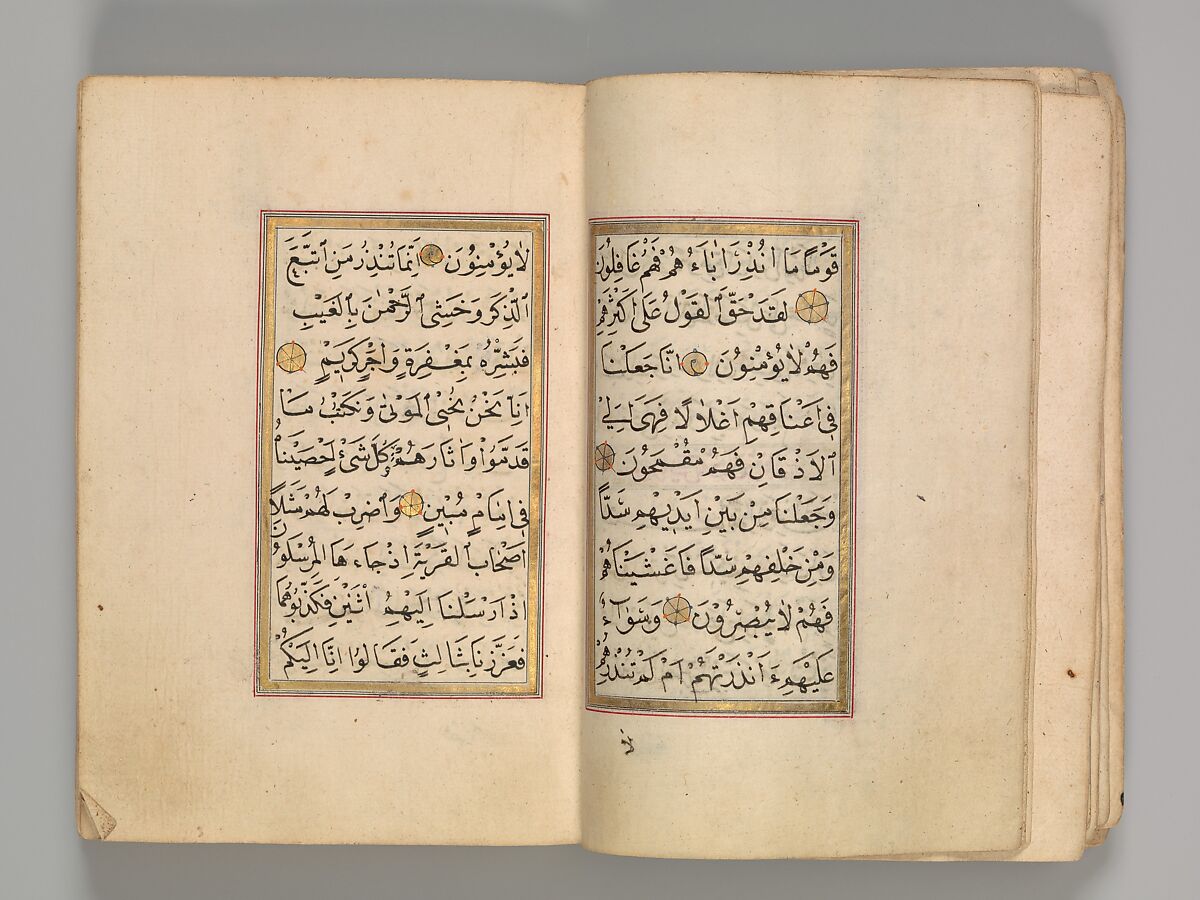 قَوْمًا مَا اُنْذِرَ اٰبَاءُ هُمْ فَهُمْ غَافِلُونَ
لَقَدْ حَقَّ الْقَوْلُ عَلٰى اَكْثَرِهِمْ
فَهُمْ لَا يُؤْمِنُونَ اِنَّا جَعَلْنَا
فِى اَعْنَاقِهِمْ اَغْلَالًا فَهِىَ اِلَى
الْاَذْقَانِ فَهُمْ مُقْمَحُونَ
وَجَعَلْنَا مِنْ بَيْنِ اَيْدِيهِمْ سَدًّا
وَمِنْ خَلْفِهِمْ سَدًّا فَاَغْشَيْنَاهُمْ
فَهُمْ لَا يُبْصِرُونَ وَسَوَاءٌ
عَلَيْهِمْ ءَ اَنْذَرْتَهُمْ اَمْ لَمْ تُنْذِرْهُمْ
لا
لَا يُؤْمِنُونَ اِنَّمَا تُنْذِرُ مَنِ اتَّبَعَ
الذِّكْرَ وَخَشِىَ الرَّحْمٰنَ بِالْغَيْبِ
فَبَشِّرْهُ بِمَغْفِرَةٍ وَاَجْرٍ كَرِيمٍ
اِنَّا نَحْنُ نُحْىِ الْمَوْتٰى وَنَكْتُبُ مَا
قَدَّمُوا وَاٰثَارَهُمْ وَكُلَّ شَىْءٍ اَحْصَيْنَاهُ
فِى اِمَامٍ مُبِينٍ وَاضْرِبْ لَهُمْ مَثَلًا
اَصْحَابَ الْقَرْيَةِ اِذْ جَاءَ هَا الْمُرْسَلُونَ
اِذْ اَرْسَلْنَا اِلَيْهِمُ اثْنَيْنِ فَكَذَّبُوهُمَا
فَعَزَّزْنَا بِثَالِثٍ فَقَالُوا اِنَّا اِلَيْكُمْ